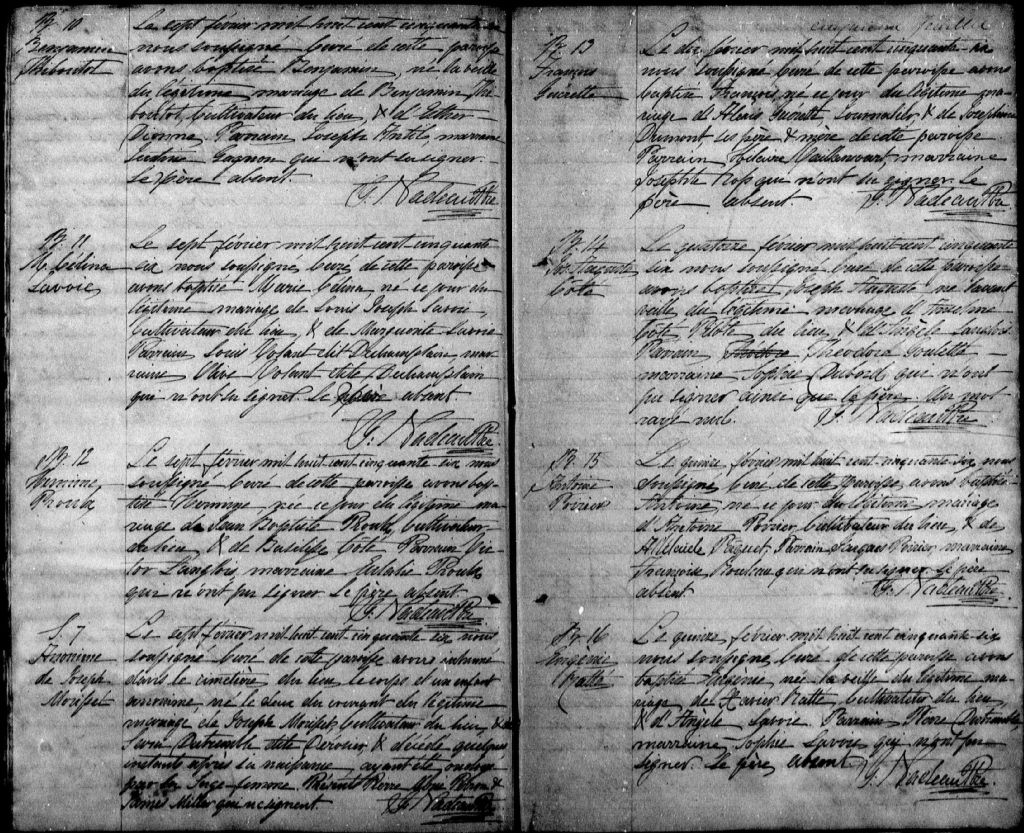 B. 10
Benjamin
Thiboutot
Le sept février mil huit cent cinquante six
nous soussigné curé de cette paroisse
avons baptisé Benjamin, né la veille
du légitime mariage de Benjamin Thi-
boutot, cultivateur du lieu, & d'Esther
Dionne Parrain Joseph marraine
Justine Gagnon qui n'ont su signer.
Le père absent.
F. Nadeau Ptre
B. 11
M. Célina
Savoie
Le sept février mil huit cent cinquante
six nous soussigné curé de cette paroisse
avons baptisé Marie Celina, née ce jour du
légitime mariage de Louis Joseph Savoie,
cultivateur du lieu, & de Marguerite Savoie
Parrain Louis Volant dit Dechamplain, mar-
raine Olive Volant dite Dechamplain
qui n'ont su signer. Le père absent
F. Nadeau Ptre
B. 12
Proulx
Le sept février mil huit cent cinquante six nous
soussigné curé de cette paroisse avons bap-
tisé née ce jour du légitime ma-
riage de Jean Baptiste Proulx, cultivateur
du lieu, & de Basilisse Coté Parrain Vic-
tor Langlois, marraine Eulalie Proulx
qui n'ont pu signer Le père absent
F. Nadeau Ptre
S. 7
Anonime
de Joseph
Morisset
Le sept février mil huit cent cinquante six nous
soussigné curé de cette paroisse avons inhumé
dans le cimetière du lieu le corps d'un enfant
anonime, né le deux du courant du légitime
mariage de Joseph Morisset, cultivateur du lieu, & de
Dutremble dite Derosier, & décédé quelques
instants après la naissance ayant été ondoyé
par la Sage-femme. Présents Pierre &
James Miller qui ne signent.
F. Nadeau Ptre
cinquième feuillet
B. 13
François
Guérette
Le dix février mil huit cent cinquante-six
nous soussigné curé de cette paroisse avons
baptisé François, né ce jour du légitime ma-
riage d'Alexis Guérette, Journalier, & de Josephine
Dumont, ses père & mère de cette paroisse
Parrain Hilaire Vaillancourt marraine
Josephte Ross qui n'ont su signer. Le
père absent
F. Nadeau Ptre
B. 14
Jos. Auguste
Coté
Le quatorze février mil huit cent cinquante
six nous soussigné curé de cette paroisse
avons baptisé Joseph Auguste né l'avant
veille du légitime mariage d'Anselme
Coté Pilote du lieu, & d'Angèle Langlois
Parrain Théodore Goulette
marraine Sophie Dubord qui n'ont
pu signer ainsi que le père. Un mot
rayé nul.
F. Nadeau Ptre
B. 15
Antoine
Poirier
Le quinze février mil huit cent cinquante-six nous
soussigné curé de cette Paroisse, avons baptisé
Antoine, né ce jour du légitime mariage
d'Antoine Poirier Cultivateur du lieu, & de
Adélaïde Paquet. Parrain Jacques Poirier, marraine
Françoise Rouleau qui n'ont su signer Le père
absent
F. Nadeau Ptre
B. 16
Eugénie
Ratté
Le quinze février mil huit cent cinquante-six
nous soussigné curé de cette paroisse avons
baptisé Eugénie, née la veille du légitime ma-
riage de Xavier Ratté, cultivateur du lieu
& d'Angèle Savoie Parrain Pierre Dutremble
marraine Sophie Savoie qui n'ont pu
signer. Le père absent.
F. Nadeau Ptre